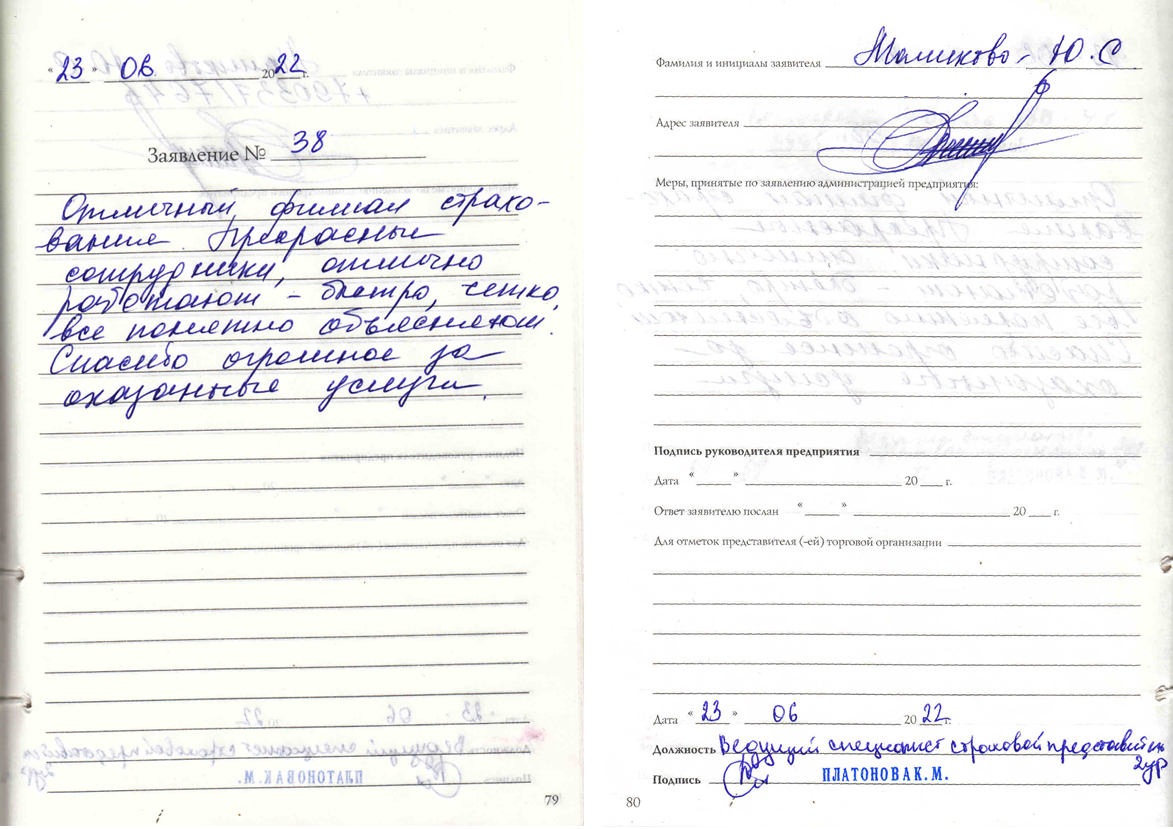 « 23 » 06 2022 г.
Заявление № 38
Отличный филиал страхо-
вание. Прекрасные
сотрудники, отлично
работают – быстро, четко,
все понятно объясняют.
Спасибо огромное за
оказанные услуги.
79
Фамилия и инициалы заявителя Ю.С
Адрес заявителя
Меры, принятые по заявлению администрацией предприятия:
Подпись руководителя предприятия
Дата « » 20 г.
Ответ заявителю послан « » 20 г.
Для отметок представителя (-ей) торговой организации
Дата « 23 » 06 2022 г.
Должность Ведущий специалист страховой представитель
2ур
Подпись ПЛАТОНОВА К.М.
80